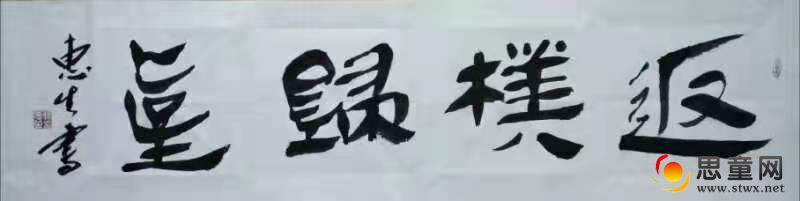 返樸歸真
惠生書
思童网
www.stwx.net